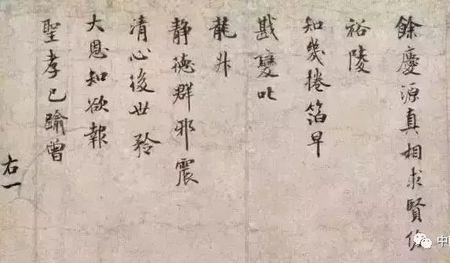 餘慶源真相求賢
裕陵
知幾捲箔早
戡變叱
龍升
靜德群邪震
清心後世矜
大恩知欲報
聖孝已踰曾
右一
中